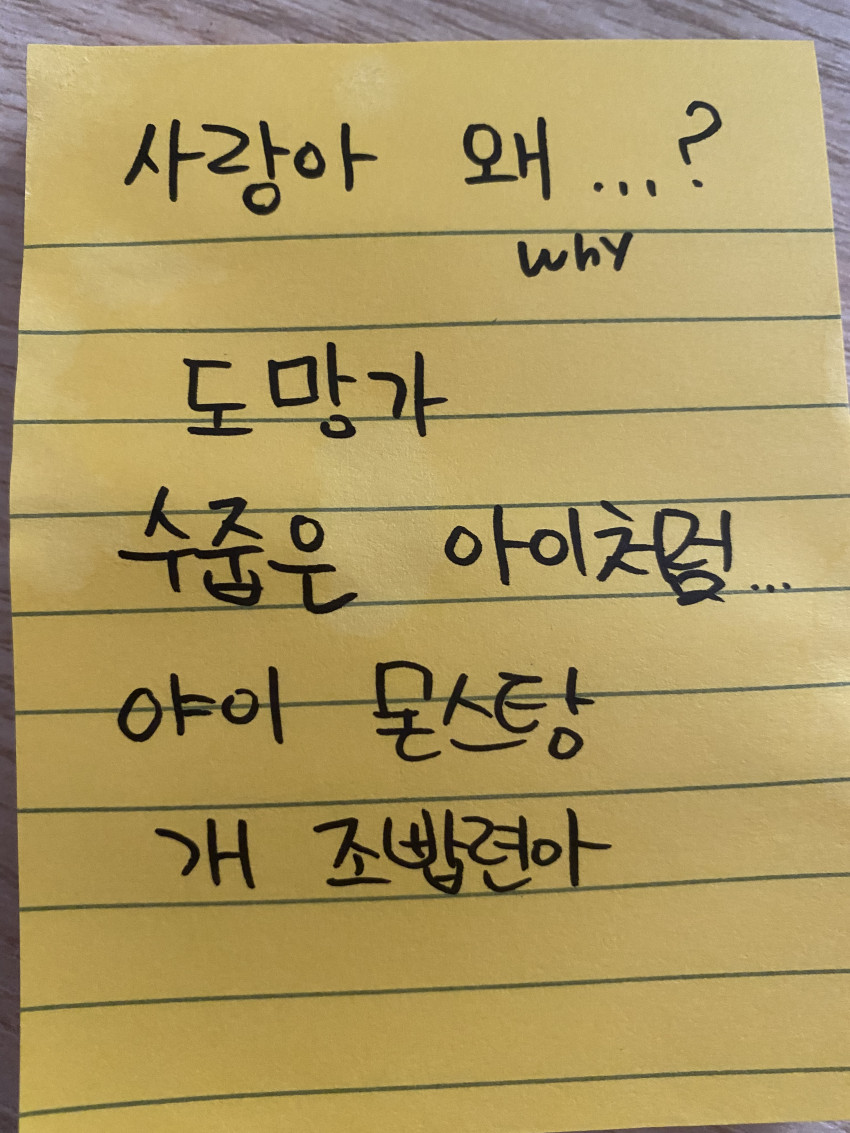 사랑아 왜...?
why
도망가
수줍은 아이처럼...
야이 몬스탕
개 조밥련아